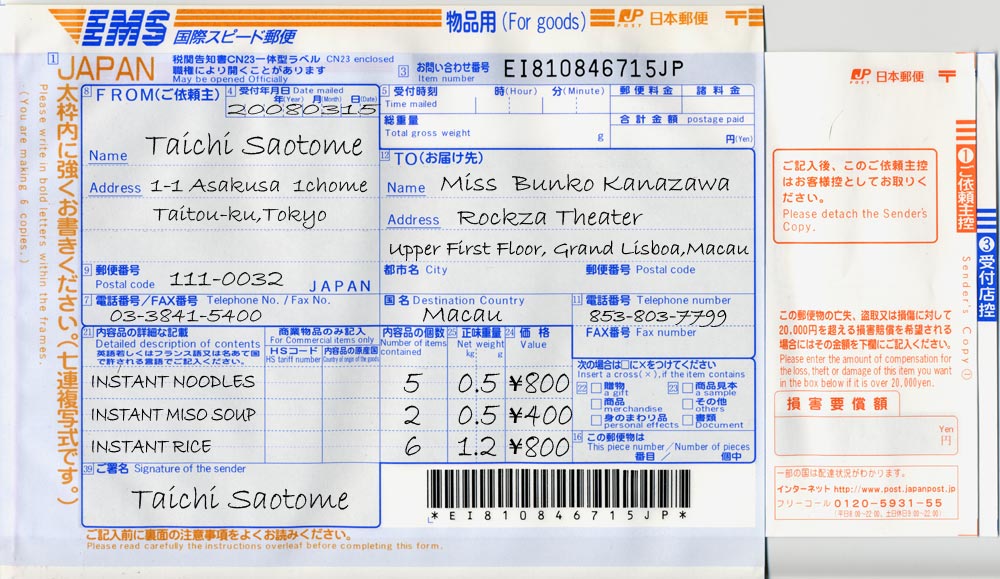 EMS 国際スピード郵便
物品用 (For goods)
JP POST 日本郵便 〒
1
JAPAN
税関告知書CN23一体型ラベル CN23 enclosed
職権により開くことがあります
May be opened Officially
3 お問い合わせ番号
Item number
EI810846715JP
太枠内に強くお書きください。(七連複写式です。)
Please write in bold letters within the frames.
(You are making 6 copies.)
8 FROM(ご依頼主)
4 受付年月日 Date mailed
年(Year) 月(Month) 日(Date)
20080315
Name Taichi Saotome
Address 1-1 Asakusa 1chome
Taitou-ku,Tokyo
9 郵便番号
Postal code
111-0032 JAPAN
7 電話番号/FAX番号 Telephone No. / Fax No.
03-3841-5400
5 受付時刻 時(Hour) 分(Minute)
Time mailed
総重量
Total gross weight g
郵便料金 諸料金
合計金額 postage paid
円(Yen)
12 TO(お届け先)
Name Miss Bunko Kanazawa
Address Rockza Theater
Upper First Floor, Grand Lisboa,Macau
都市名 City 郵便番号 Postal code
国名 Destination Country
Macau
11 電話番号 Telephone number
853-803-7799
FAX番号 Fax number
21 内容品の詳細な記載
Detailed description of contents
英語若しくはフランス語又は名あて国
で許される言語でご記入ください。
商業物品のみ記入
For Commercial items only
HSコード
HS tariff number
内容品の原産国
Country of origin of the goods
内容品の個数
Number of items contained
25 正味重量
Net weight
kg g
24 価格
Value
INSTANT NOODLES 5 0.5 ¥800
INSTANT MISO SOUP 2 0.5 ¥400
INSTANT RICE 6 1.2 ¥800
次の場合は□に×をつけてください
Insert a cross(×),if the item contains
22 贈物
a gift
商品
merchandise
身のまわり品
personal effects
23 商品見本
a sample
その他
others
書類
Document
16 この郵便物は
This piece number/Number of pieces
番目/ 個中
39 ご署名 Signature of the sender
Taichi Saotome
*EI810846715JP*
ご記入前に裏面の注意事項をよくお読みください。
Please read carefully the instructions overleaf before completing this form.
JP POST 日本郵便 〒
ご記入後、このご依頼主控
はお客様控としてお取りく
ださい。
Please detach the Sender's
Copy.
1 ご依頼主控
Sender's Copy ①
3 受付店控
この郵便物の亡失、盗取又は損傷に対して
20,000円を超える損害賠償を希望される
場合にはその金額を下欄にご記入ください。
Please enter the amount of compensation for
the loss, theft or damage of this item you want
in the box below if it is over 20,000yen.
損害要償額
Yen
円
一部の国は配達状況がわかります。
インターネット http://www.post.japanpost.jp
フリーコール 0120-5931-55
(平日8:00~22:00、土日休日9:00~22:00)